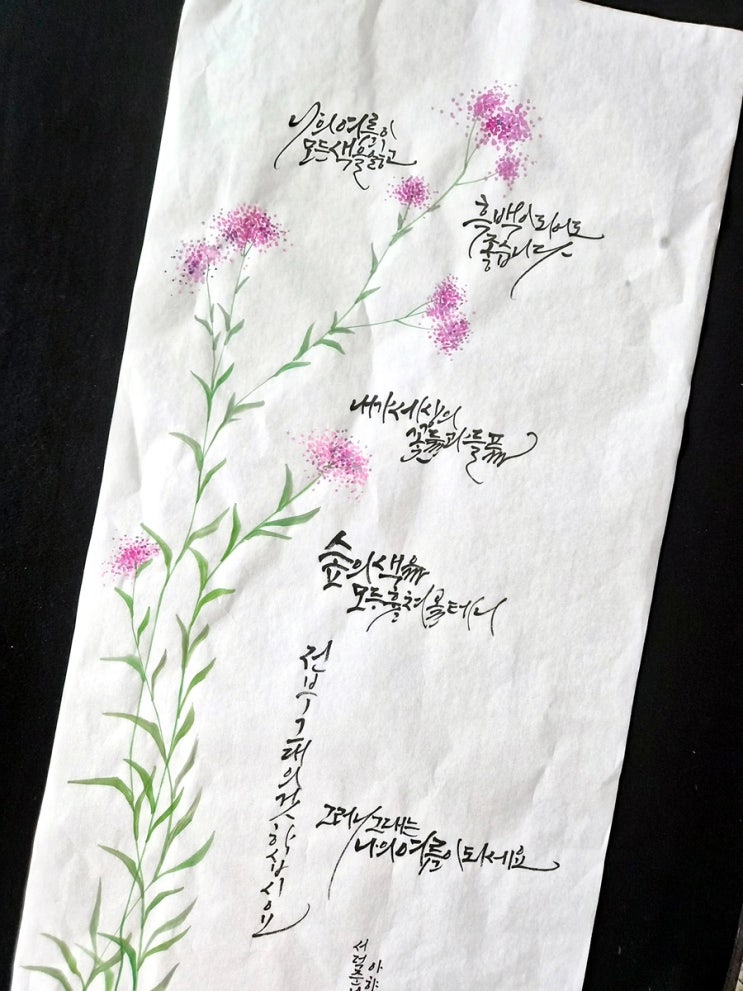 나의 여름이
모든 색을 잃고
흑백이 되어도
좋습니다
내가 세상의
꽃들과 들풀
숲의 색을
모두 훔쳐올 테니
전부 그대의 것 하십시오
그러니 그대는
나의 여름이 되세요
서덕준